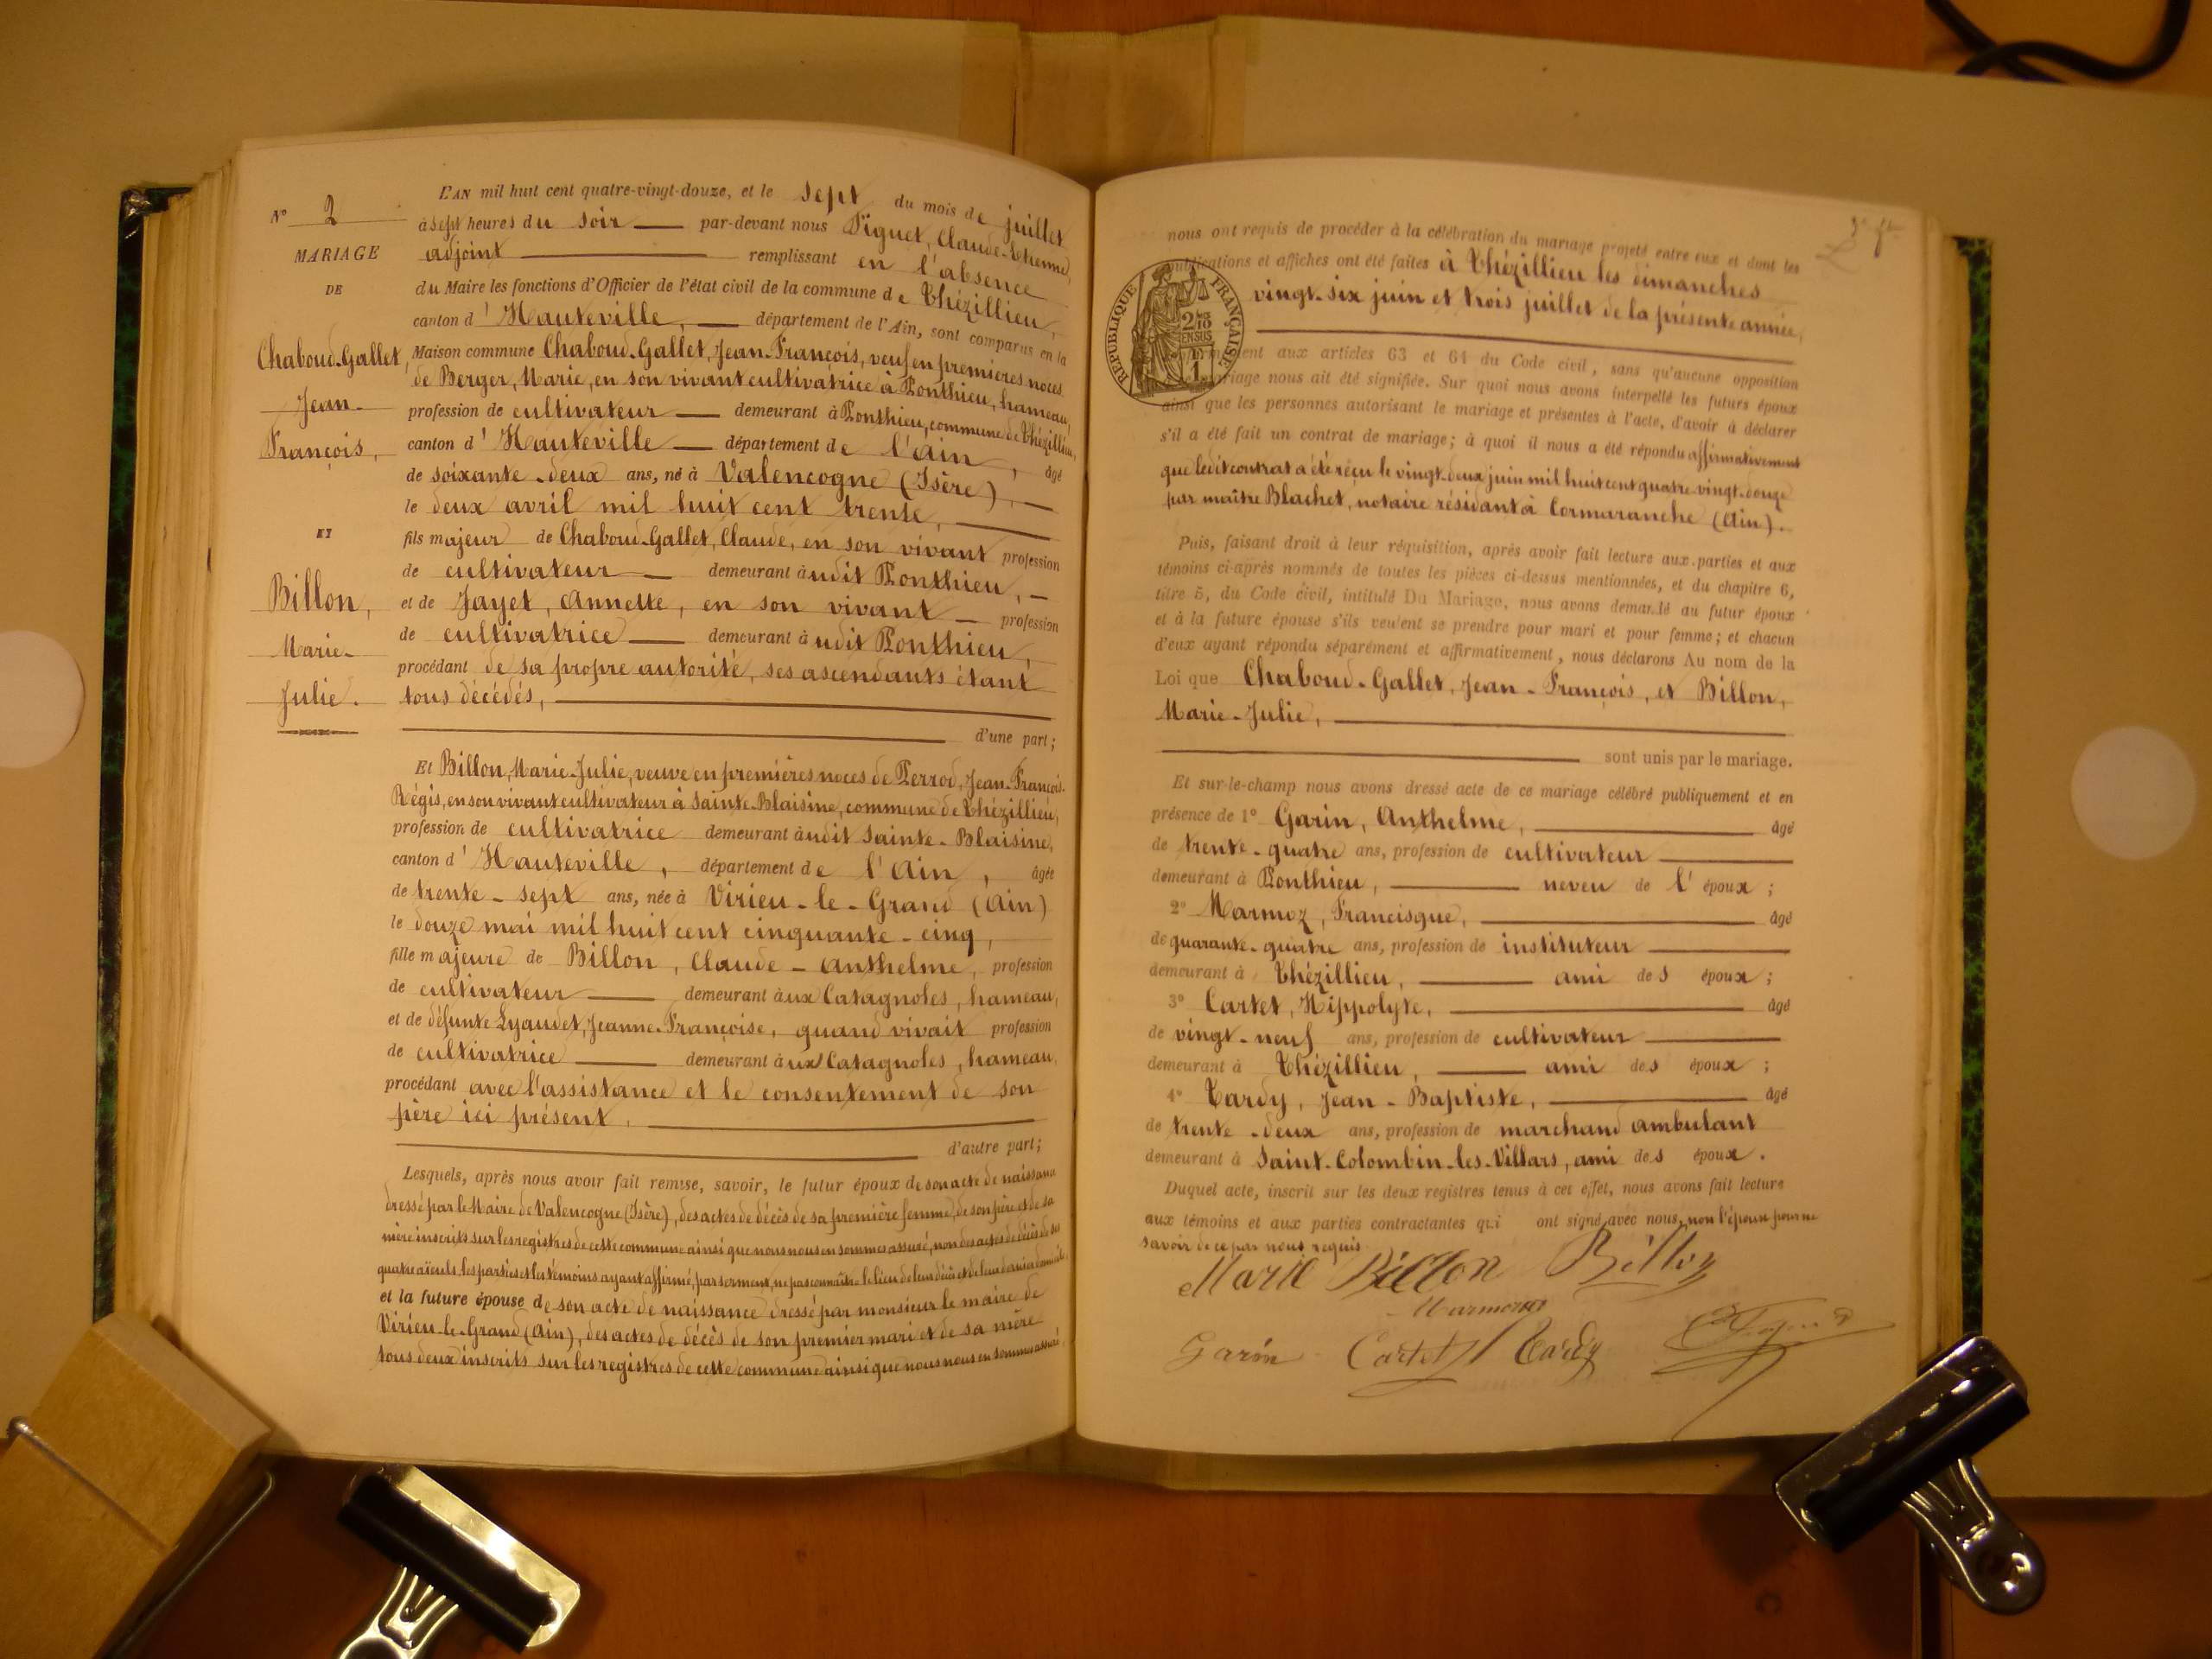 N° 2
MARIAGE
DE
Chaboud-Gallet,
Jean-
François,
ET
Billon,
Marie-
Julie.
L'AN mil huit cent quatre-vingt-douze, et le sept du mois de juillet
à sept heures du soir — par-devant nous Piguet, Claude-Etienne,
adjoint — remplissant en l'absence
du Maire les fonctions d'Officier de l'état civil de la commune de Thézillieu,
canton d'Hauteville, — département de l'Ain, sont comparus en la
Maison commune Chaboud-Gallet, Jean-François, veuf en premières noces
de Berger, Marie, en son vivant cultivatrice à Ponthieu, hameau,
profession de cultivateur — demeurant à Ponthieu, commune de Thézillieu,
canton d'Hauteville — département de l'Ain, âgé
de soixante-deux ans, né à Valencogne (Isère), —
le deux avril mil huit cent trente, —
fils majeur de Chaboud-Gallet, Claude, en son vivant profession
de cultivateur — demeurant à udit Ponthieu, —
et de Jayet, Annette, en son vivant — profession
de cultivatrice — demeurant à udit Ponthieu,
procédant de sa propre autorité, ses ascendants étant
tous décédés, —
d'une part;
Et Billon, Marie-Julie, veuve en premières noces de Perrod, Jean-François-
Régis, en son vivant cultivateur à Sainte-Blaisine, commune de Thézillieu,
profession de cultivatrice demeurant à udit Sainte-Blaisine,
canton d'Hauteville, département de l'Ain, âgée
de trente-sept ans, née à Virieu-le-Grand (Ain)
le douze mai mil huit cent cinquante-cinq,
fille majeure de Billon, Claude-Anthelme, profession
de cultivateur — demeurant à ux Catagnoles, hameau,
et de défunte Lyaudet, Jeanne-Françoise, quand vivait profession
de cultivatrice — demeurant à ux Catagnoles, hameau,
procédant avec l'assistance et le consentement de son
père ici présent, —
d'autre part;
Lesquels, après nous avoir fait remise, savoir, le futur époux de son acte de naissance
dressé par le Maire de Valencogne (Isère), des actes de décès de sa première femme, de son père et de sa
mère inscrits sur les registres de cette commune ainsi que nous nous en sommes assuré, non des actes de décès de ses
quatre aïeuls, les parties et les témoins ayant affirmé, par serment, ne pas connaître le lieu de leur décès et de leur dernier domicile,
et la future épouse de son acte de naissance dressé par monsieur le maire de
Virieu-le-Grand (Ain), des actes de décès de son premier mari et de sa mère
tous deux inscrits sur les registres de cette commune ainsi que nous nous en sommes assuré,
nous ont requis de procéder à la célébration du mariage projeté entre eux et dont les
publications et affiches ont été faites à Thézillieu les dimanches
vingt-six juin et trois juillet de la présente année,
RÉPUBLIQUE FRANÇAISE
aux articles 63 et 64 du Code civil, sans qu'aucune opposition
mariage nous ait été signifiée. Sur quoi nous avons interpellé les futurs époux
ainsi que les personnes autorisant le mariage et présentes à l'acte, d'avoir à déclarer
s'il a été fait un contrat de mariage; à quoi il nous a été répondu affirmativement
que ledit contrat a été reçu le vingt-deux juin mil huit cent quatre-vingt-douze
par maître Blachet, notaire résidant à Cormaranche (Ain).
Puis, faisant droit à leur réquisition, après avoir fait lecture aux parties et aux
témoins ci-après nommés de toutes les pièces ci-dessus mentionnées, et du chapitre 6,
titre 5, du Code civil, intitulé Du Mariage, nous avons demandé au futur époux
et à la future épouse s'ils veulent se prendre pour mari et pour femme; et chacun
d'eux ayant répondu séparément et affirmativement, nous déclarons Au nom de la
Loi que Chaboud-Gallet, Jean-François, et Billon,
Marie-Julie, —
sont unis par le mariage.
Et sur-le-champ nous avons dressé acte de ce mariage célébré publiquement et en
présence de 1° Garin, Anthelme, — âgé
de trente-quatre ans, profession de cultivateur —
demeurant à Ponthieu, — neveu de l'époux;
2° Marmoz, Francisque, — âgé
de quarante-quatre ans, profession de instituteur —
demeurant à Thézillieu, — ami des époux;
3° Cartet, Hippolyte, — âgé
de vingt-neuf ans, profession de cultivateur —
demeurant à Thézillieu, — ami des époux;
4° Tardy, Jean-Baptiste, — âgé
de trente-deux ans, profession de marchand ambulant
demeurant à Saint-Colombin-les-Villars, ami des époux.
Duquel acte, inscrit sur les deux registres tenus à cet effet, nous avons fait lecture
aux témoins et aux parties contractantes qui ont signé avec nous, non l'époux pour ne
savoir de ce par nous requis.
Marie Billon Billon
Marmoz
Garin Cartet Tardy